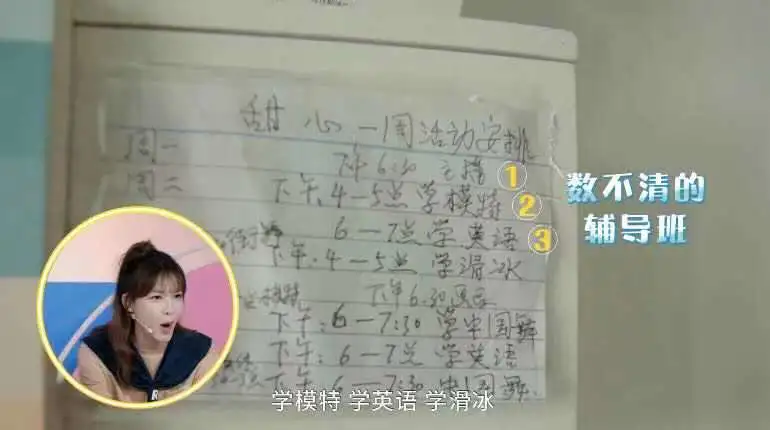 甜心一周活动安排
周一 下午6:30 主播 ①
周二 下午4-5点学模特 ②
6-7点学英语 ③
下午:4-5点 学滑冰
下午6:30
下午:6-7:30 学中国舞
下午:6-7点 学英语
下午:6-7:30 中国舞
数不清的
辅导班
R
学模特 学英语 学滑冰